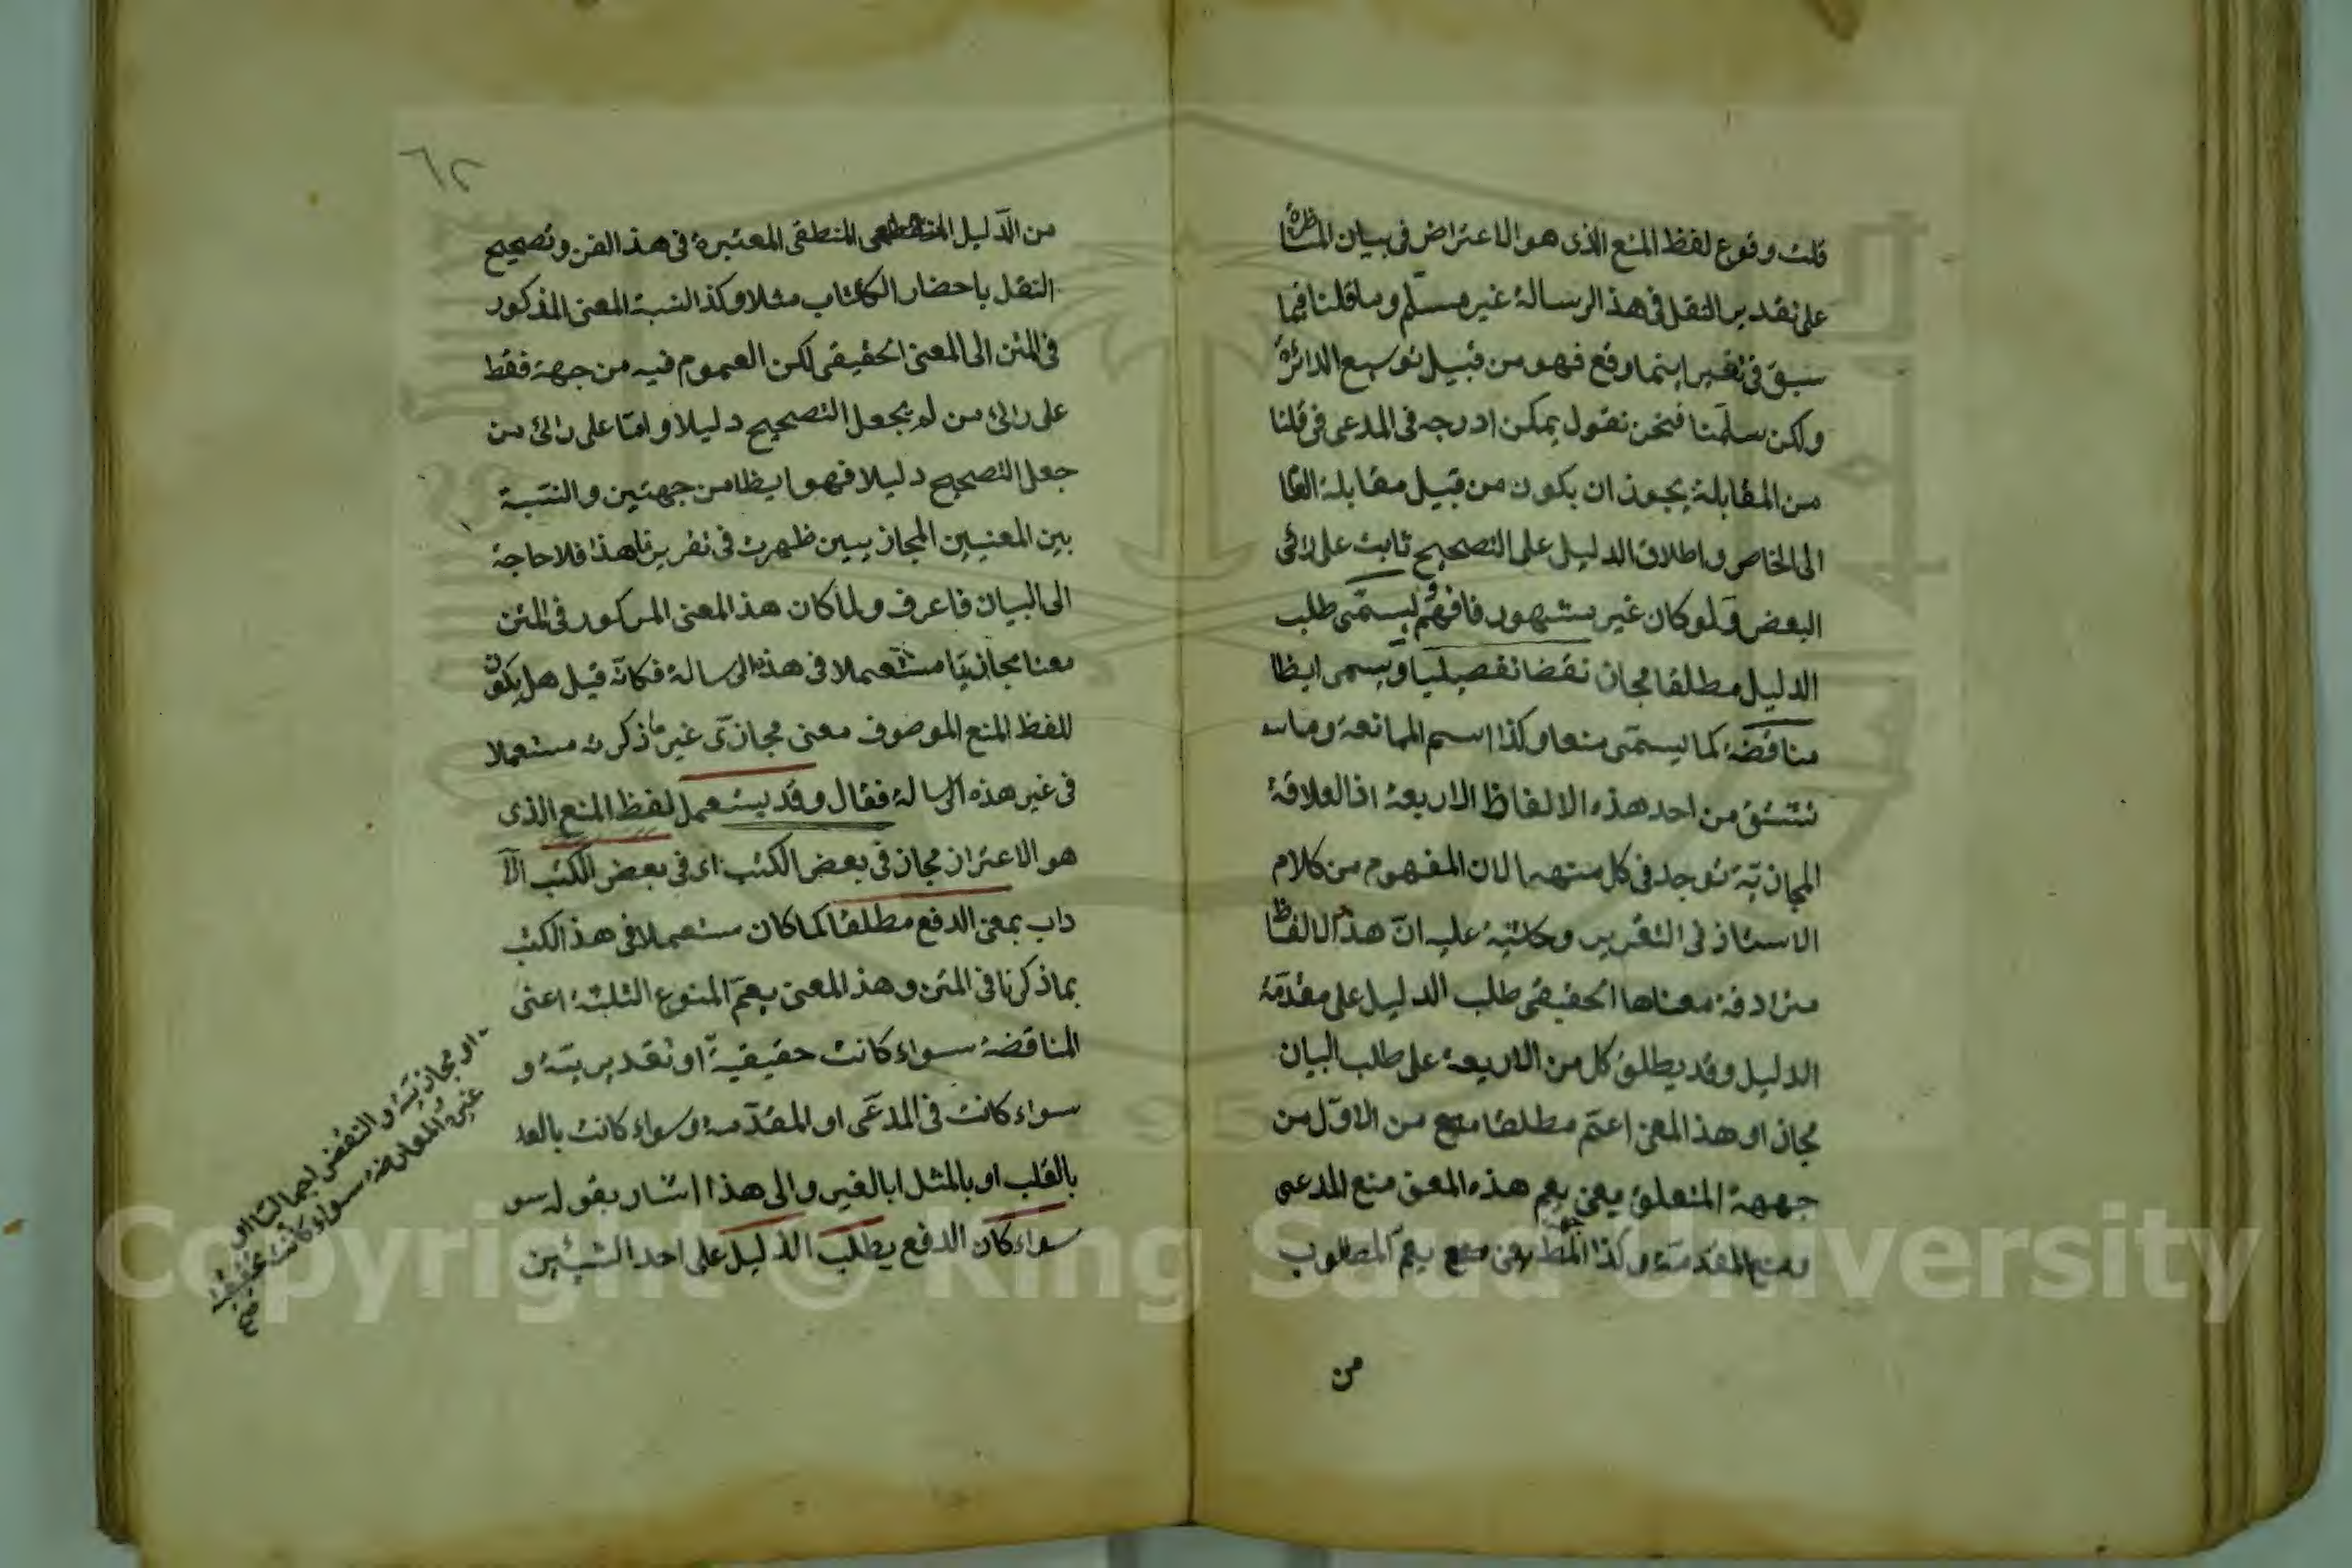 قلت وقوع لفظ المنع الذى هو الاعتراض فى بيان المناظرة
على تقدير النقل فى هذا الرسالة غير مسلم وما قلنا فيما
سبق فى تفسير اينما وقع فهو من قبيل توسيع الدائرة
ولكن سلمنا فنحن نقول يمكن ادرجه فى المدعى فى قلنا
من المقابلة يجوز ان يكون من قبيل مقابلة العا
الى الخاص واطلاق الدليل على التصحيح ثابت على رائى
البعض ولو كان غير مشهور فافهم ويسمى طلب
الدليل مطلقا مجازا نقضا تفصيليا ويسمى ايظا
مناقضة كما يسمى منعا وكذا اسم الممانعة وما
تشتق من احد هذه الالفاظ الاربعة اذ العلاقة
المجازية توجد فى كل منتهها لان المفهوم من كلام
الاستاذ فى التقرير وحاشية عليه ان هذا الالفاظ
مترادفة معناها الحقيقى طلب الدليل على مقدمة
الدليل وقد يطلق كل من الاربعة على طلب البيان
مجازا وهذ المعنى اعم مطلقا من الاول من
جههة المتعلق يعنى يعم هذه المعنى منع المدعى
ومنع المقدمة وكذا يعم المطلوب
من
٦٢
من الدليل المنطقى المعتبرة فى هذا الفن وتصحيح
النقل باحضار الكتاب مثلا وكذا النسبة المعنى المذكور
فى المتن الى المعنى الحقيقى لكن العموم فيه من جهة فقط
على رائ من لم يجعل التصحيح دليلا واما على رائ من
جعل التصحيح دليلا فهو ايظا من جهتين والنسبة
بين المعنيين المجازيين ظهرت فى تقريرنا هذا فلا حاجة
الى البيان فاعرف ولما كان هذ المعنى المركور فى المتن
معنا مجازيا مستعملا فى هذه الرسالة فكانه قيل هل يكون
للفظ المنع الموصوف معنى مجازى غير ما ذكرته مستعملا
فى غير هذه الرسالة فقال وقد يستعمل لفظ المنع الذى
هو الاعتراز مجاز فى بعض الكتب اى فى بعض الكتب الآ
داب بمعنى الدفع مطلقا كما كان مستعملا فى هذ الكتب
بما ذكرنا فى المتن وهذ المعنى يعم المنوع الثلثة اعنى
المناقضة سواء كانت حقيقية او تقديرية و
سواء كانت فى المدعى او المقدمة وسواء كانت بالعد
بالقلب او بالمثل ابالغير والى هذا اشار بقوله سو
سواء كان الدفع بطلب الدليل على احد الشيئين
او مجازية والنقض اجماليا او
غيره والمعارضة سواء كانت حقيقية